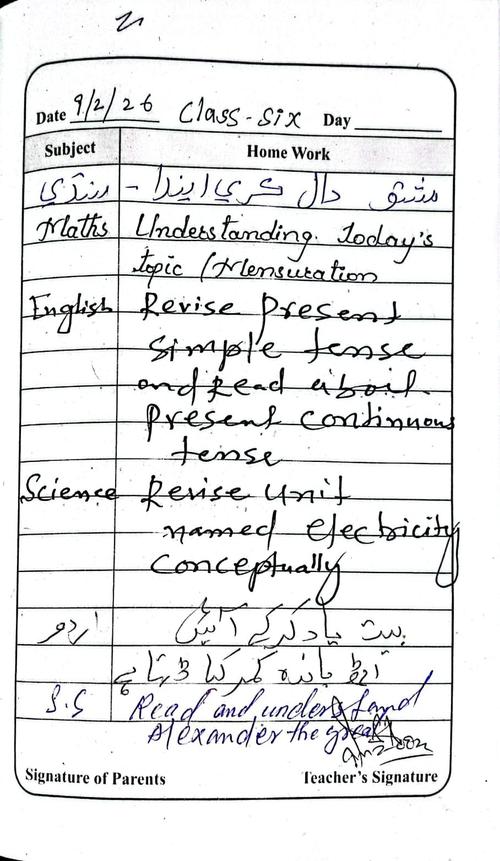 Date 9/2/26 Class-six Day
Subject Home Work
سنڌي مشق حال ڪري ايندا -
Maths Understanding. Today's
topic (Mensuration
English Revise present
simple tense
and Read about
present continuous
tense
Science Revise unit
named electricity
conceptually
اردو بیت یاد کرکے آئیں
اٹھ باندھ کمر کیا ڈرتا ہے
S.S Read and understand
Alexander the great
Signature of Parents Teacher's Signature